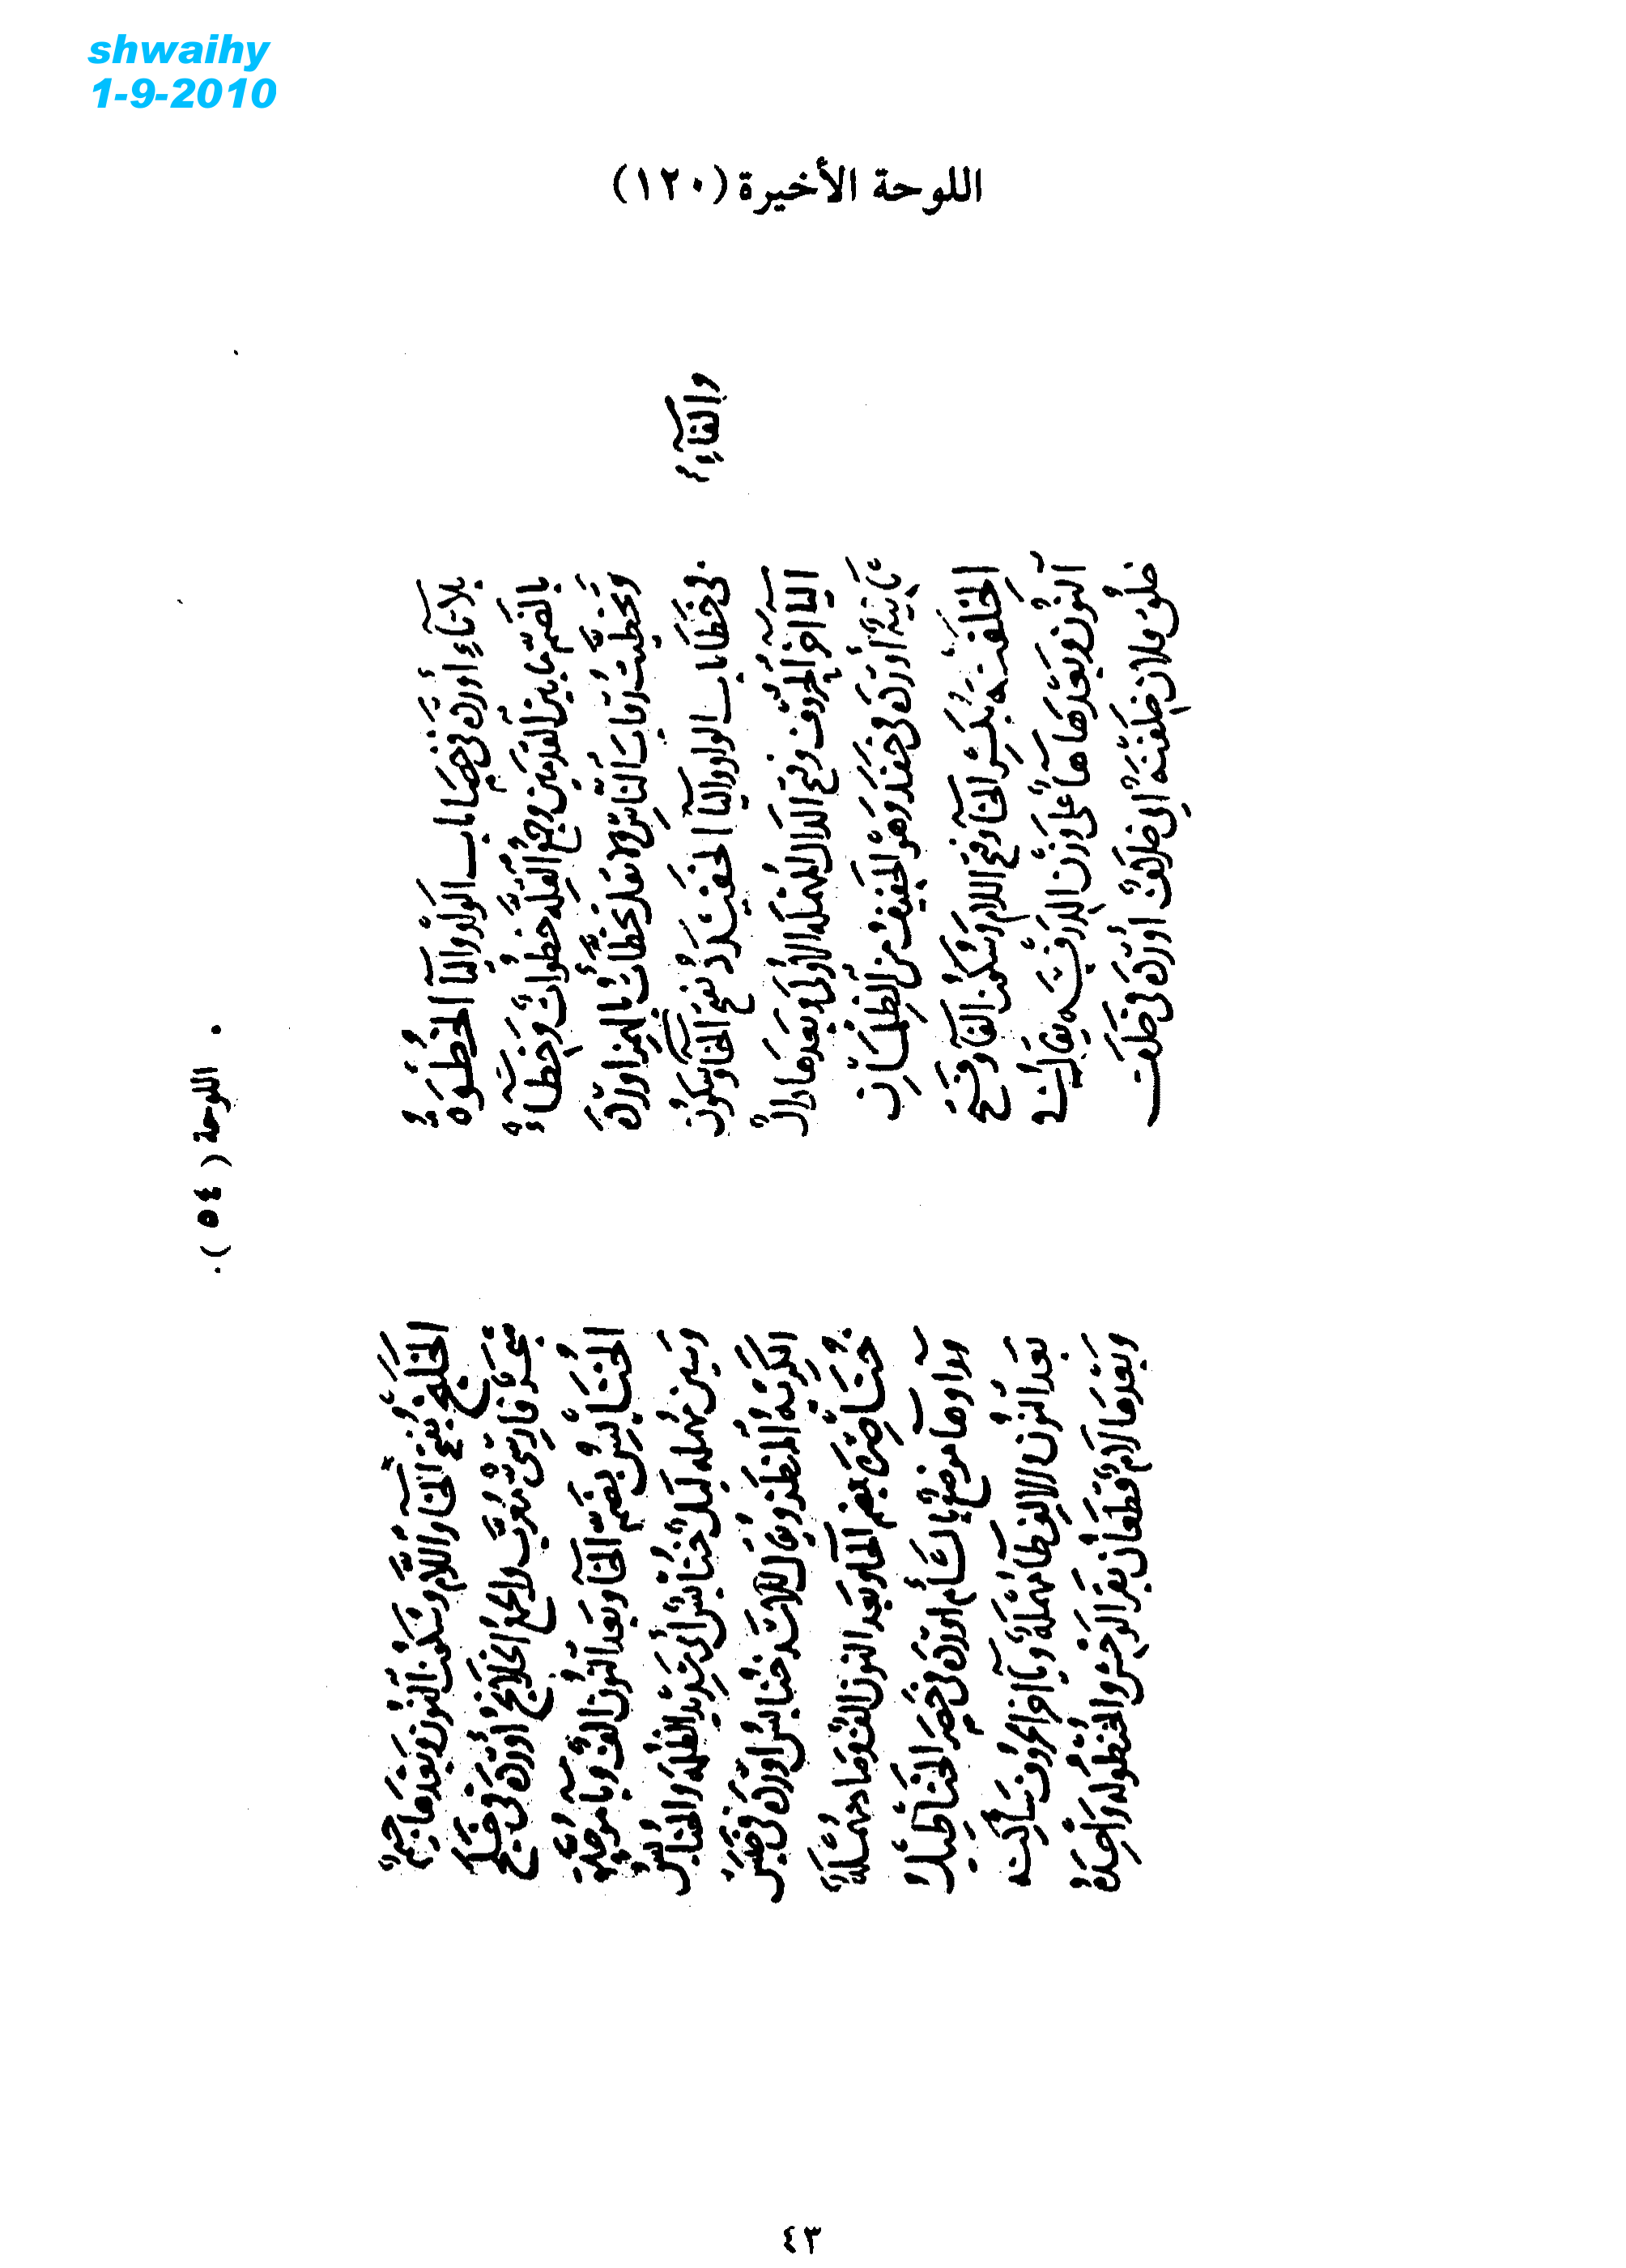 shwaihy
1-9-2010
اللوحة الأخيرة (١٢٠)
اللوحة (٥٤).
بلا تاء أورده في خصا باب الواو والياء الخطوة
بالضم ما بين القدمين وجمع القلة خطوات وخطاء
وتخطيت رقاب الناس ولا تقل تخطات بالهمز أورده
في خطا باب الواو والياء الخفيدد بفتح الخاء وسكون
والفاء
الياء آخر الحروف وفتح الدال المهملة الأولى وبعدها دال
ثانية أورده في خفد وهو الخفيف من الظلمان
الخلفنه بكسر الخاء وفتح اللام وسكون الفاء وفتح
النون وبعدها هاء على وزن الدرفسه يقال في
خلق فلان خلفنة أي خلاف أورده في خلف
الخلنج بفتح الخاء واللام وسكون النون وبعدها جيم
شجر فارسي معرب والجمع الخلانج أورده في خلج
الخنابس بضم الخاء وبعد النون الف وباء موحدة
وسين مهملة ليل خنابس أي شديد الظلمة والخنابس
الكريه المنظر ويقال للاسد خنابس أورده في خبس
خناصرة بضم الخاء وبعد النون الف وصاد مهملة
وراء وهاء موضع بالشام أورده في خصر الخناطيل
بعد النون والالف طاء مهملة وياء آخر الحروف ساكنة
وبعدها لام قطعان بقر الوحش والخنطولة واحدة
٤٣